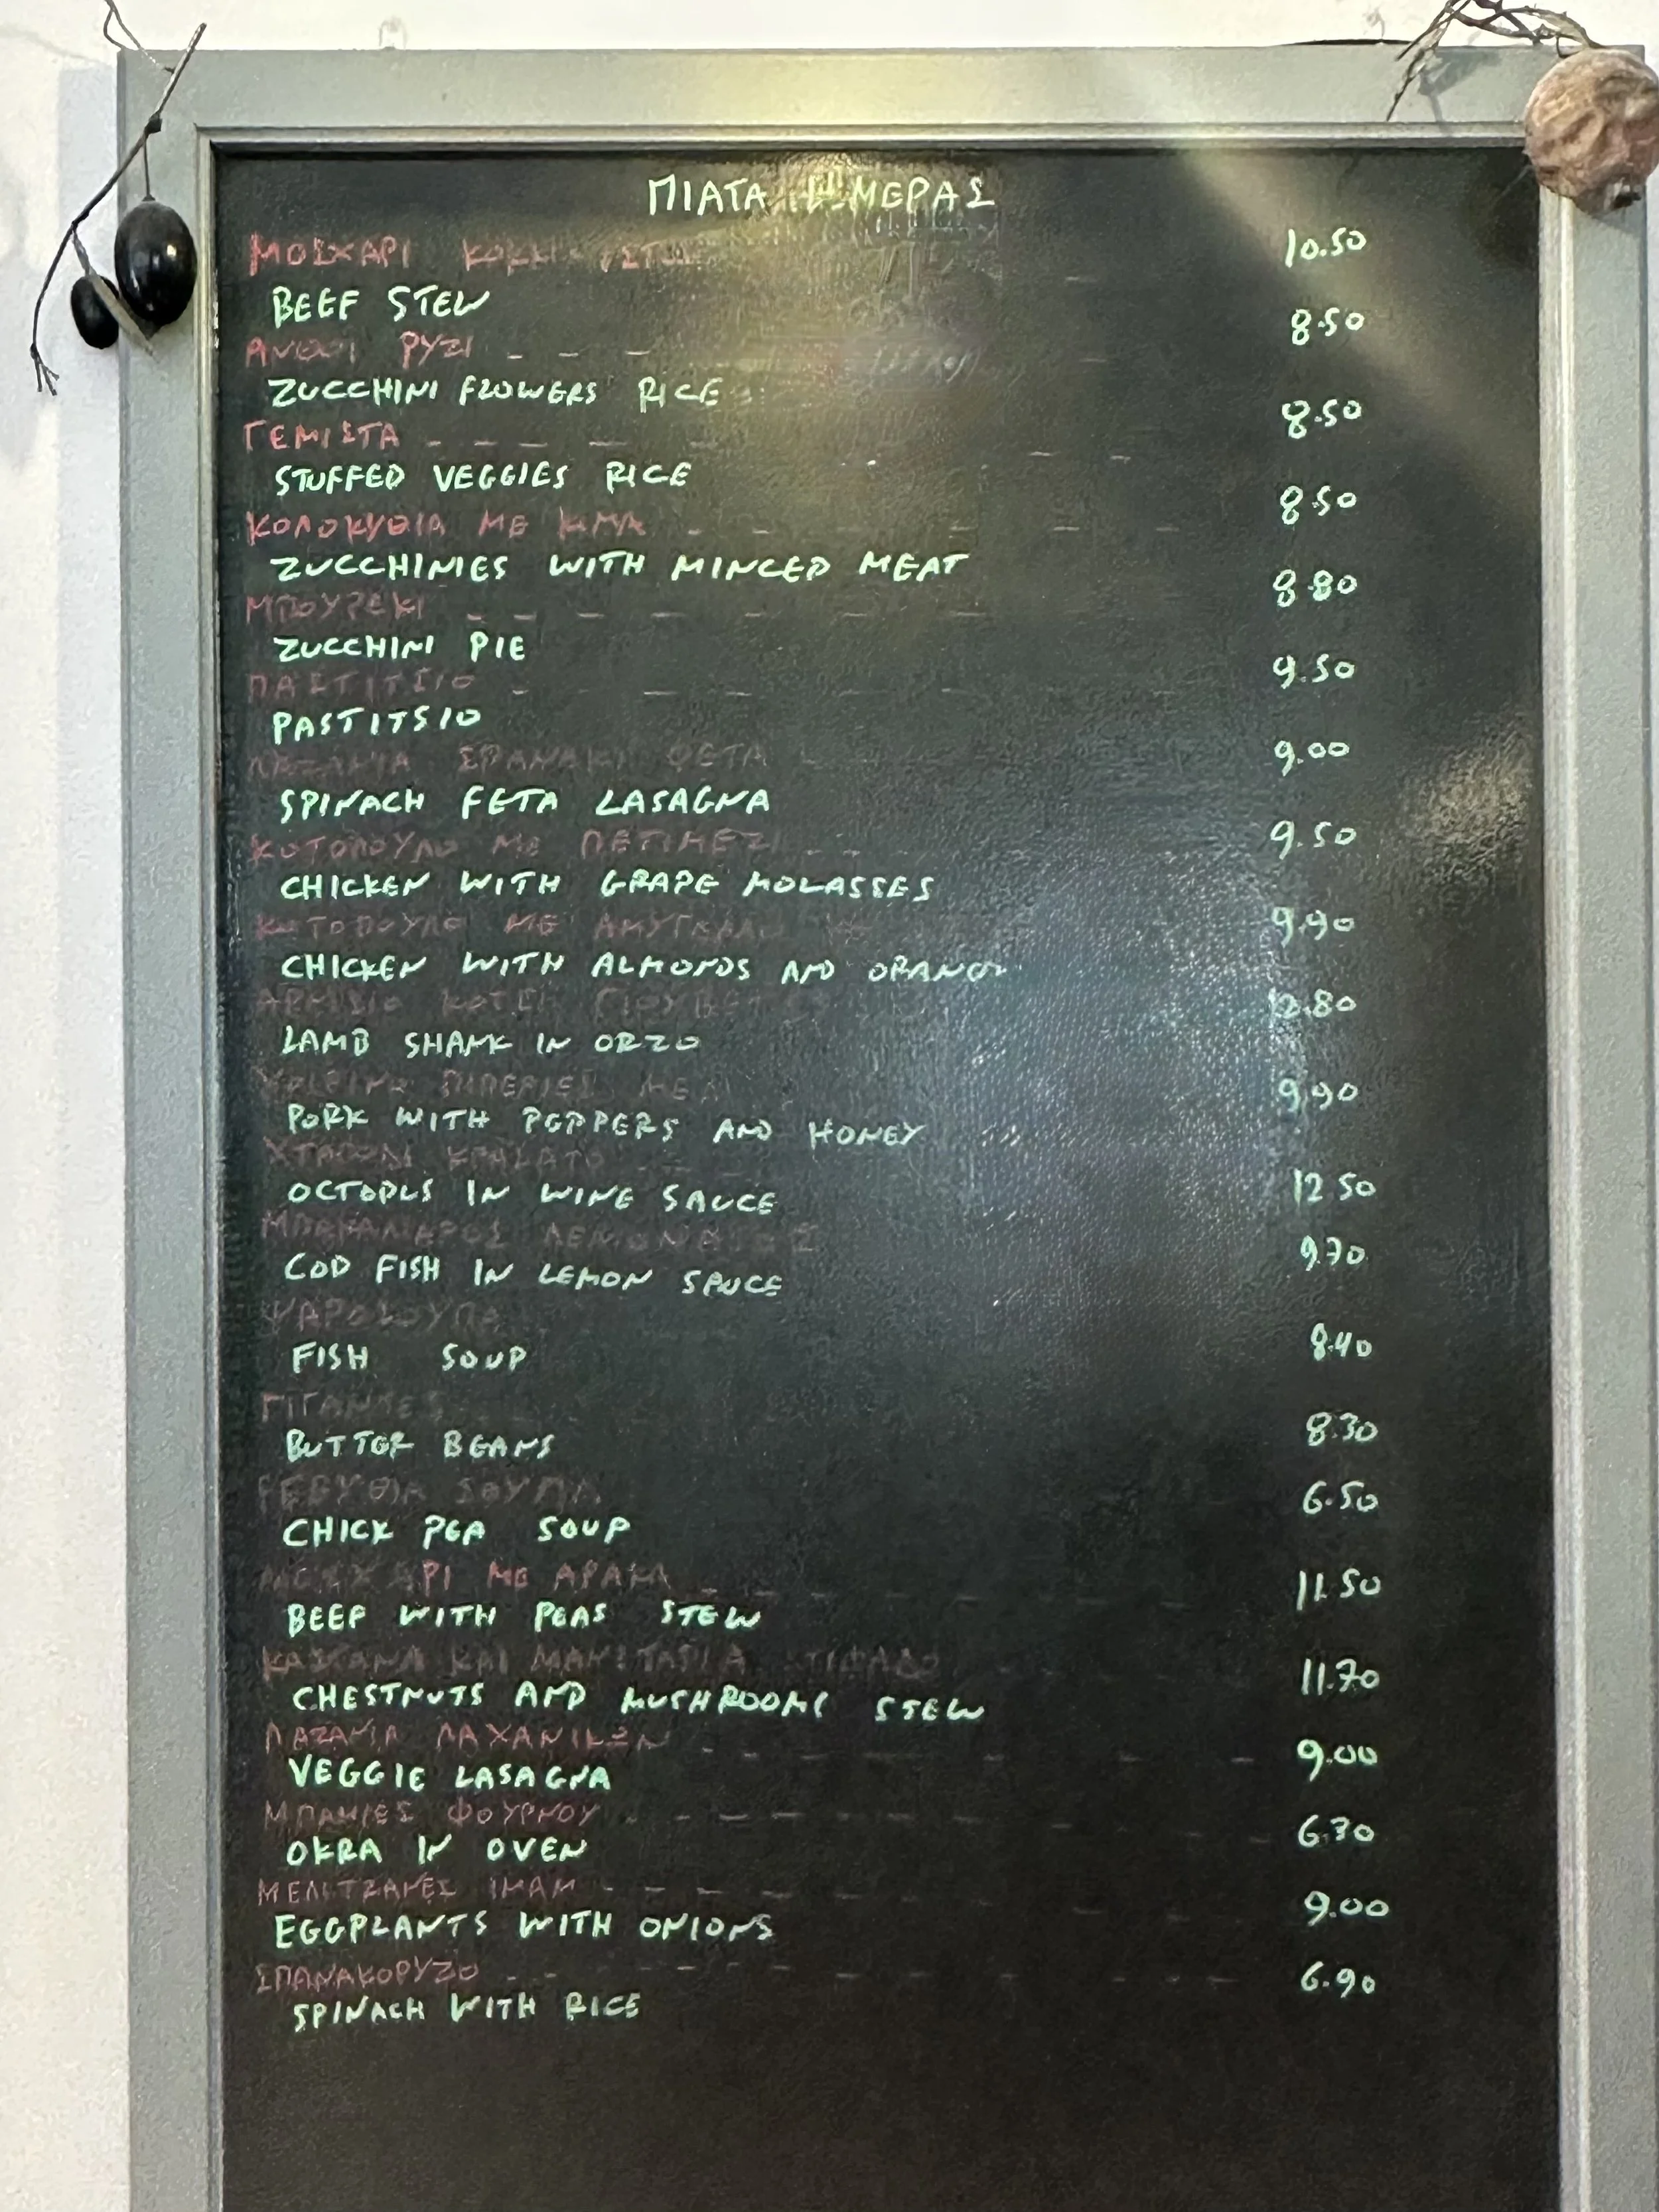 ΠΙΑΤΑ ΗΜΕΡΑΣ
ΜΟΣΧΑΡΙ 10.50
BEEF STEW
ΑΝΘΟΙ ΡΥΖΙ 8.50
ZUCCHINI FLOWERS RICE
ΓΕΜΙΣΤΑ 8.50
STUFFED VEGGIES RICE
ΚΟΛΟΚΥΘΙΑ ΜΕ ΚΙΜΑ 8.50
ZUCCHINIES WITH MINCED MEAT
ΜΠΟΥΡΕΚΙ 8.80
ZUCCHINI PIE
ΠΑΣΤΙΤΣΙΟ 9.50
PASTITSIO
ΛΑΖΑΝΙΑ ΣΠΑΝΑΚΙ ΦΕΤΑ 9.00
SPINACH FETA LASAGNA
ΚΟΤΟΠΟΥΛΟ ΜΕ ΠΕΤΙΜΕΖΙ 9.50
CHICKEN WITH GRAPE MOLASSES
ΚΟΤΟΠΟΥΛΟ ΜΕ ΑΜΥΓΔΑΛΟ 9.90
CHICKEN WITH ALMONDS AND ORANGE
ΚΟΤΣΙ 12.80
LAMB SHANK IN ORZO
ΧΟΙΡΙΝΟ ΠΙΠΕΡΙΕΣ ΜΕΛΙ 9.90
PORK WITH PEPPERS AND HONEY
ΧΤΑΠΟΔΙ ΚΡΑΣΑΤΟ 12.50
OCTOPUS IN WINE SAUCE
ΜΠΑΚΑΛΙΑΡΟΣ ΛΕΜΟΝΑΤΟΣ 9.70
COD FISH IN LEMON SAUCE
ΨΑΡΟΣΟΥΠΑ 8.40
FISH SOUP
ΓΙΓΑΝΤΕΣ 8.30
BUTTER BEANS
ΡΕΒΥΘΙΑ ΣΟΥΠΑ 6.50
CHICK PEA SOUP
ΜΟΣΧΑΡΙ ΜΕ ΑΡΑΚΑ 11.50
BEEF WITH PEAS STEW
ΚΑΣΤΑΝΑ ΚΑΙ ΜΑΝΙΤΑΡΙΑ ΣΤΙΦΑΔΟ 11.70
CHESTNUTS AND MUSHROOMS STEW
ΛΑΖΑΝΙΑ ΛΑΧΑΝΙΚΩΝ 9.00
VEGGIE LASAGNA
ΜΠΑΜΙΕΣ ΦΟΥΡΝΟΥ 6.30
OKRA IN OVEN
ΜΕΛΙΤΖΑΝΕΣ ΙΜΑΜ 9.00
EGGPLANTS WITH ONIONS
ΣΠΑΝΑΚΟΡΥΖΟ 6.90
SPINACH WITH RICE